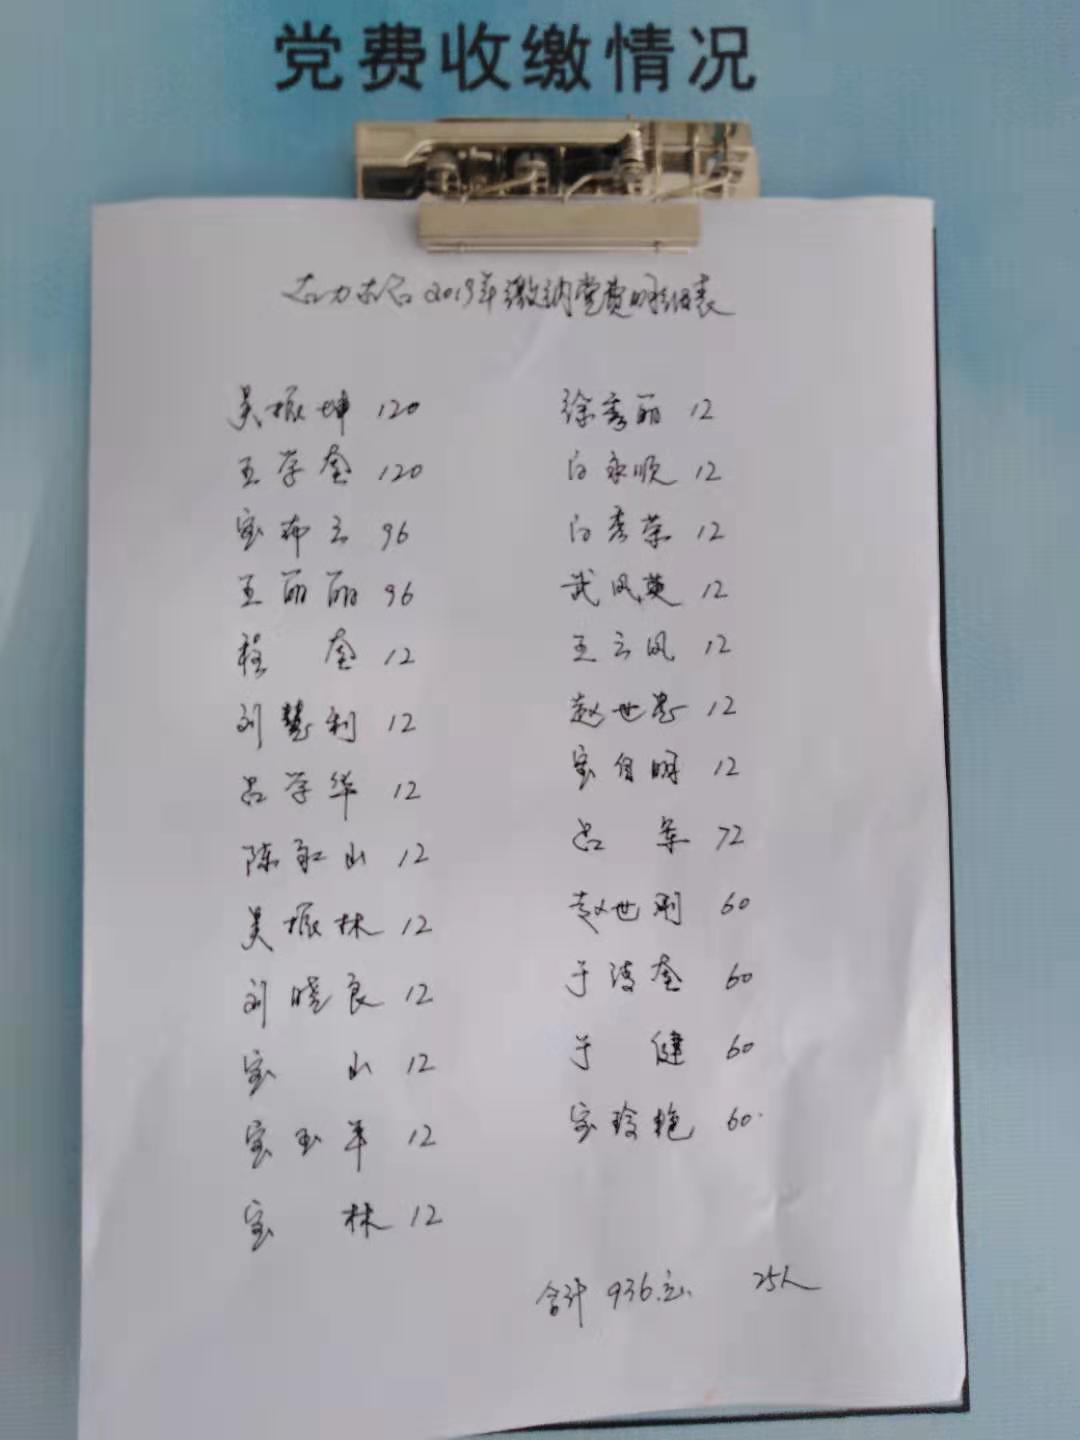 党费收缴情况
古力古台2019年缴纳党费明细表
吴振坤 120
王学奎 120
宝布云 96
王丽丽 96
程 奎 12
刘慧利 12
吕学华 12
陈永山 12
吴振林 12
刘晓良 12
宝 山 12
宝玉军 12
宝 林 12
徐秀丽 12
白永顺 12
白秀荣 12
武凤英 12
王云凤 12
赵世忠 12
宝自明 12
吕 军 72
赵世刚 60
于清奎 60
于 健 60
宝玲艳 60
合计 936.元. 25人